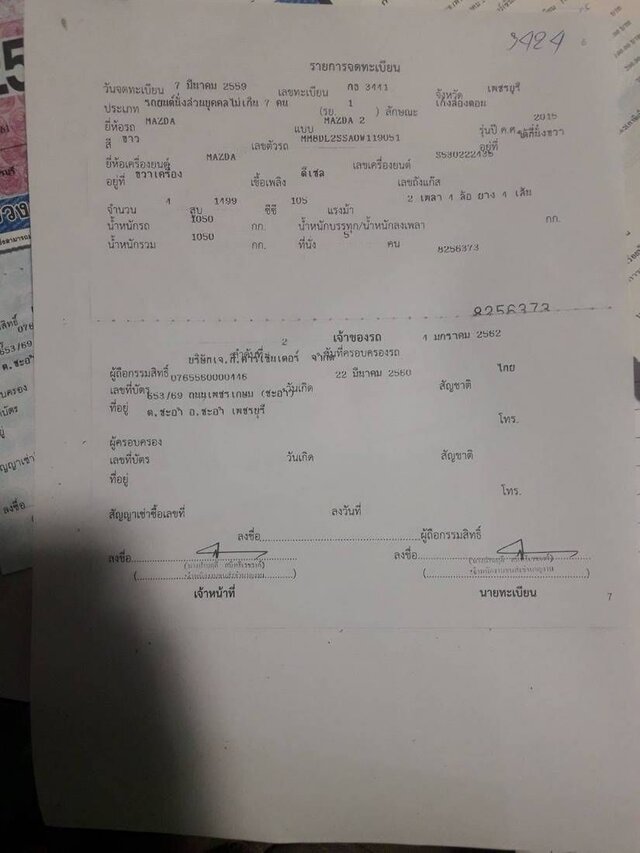 3424
รายการจดทะเบียน
วันจดทะเบียน 7 มีนาคม 2559 เลขทะเบียน กธ 3441 จังหวัด เพชรบุรี
ประเภท รถยนต์นั่งส่วนบุคคลไม่เกิน 7 คน (รย. 1 ) ลักษณะ เก๋งสองตอน
ยี่ห้อรถ MAZDA แบบ MAZDA 2 รุ่นปี ค.ศ. 2015
สี ขาว เลขตัวรถ MM8DL2SSAOW119051 อยู่ที่ ใต้ที่นั่งขวา
ยี่ห้อเครื่องยนต์ MAZDA เลขเครื่องยนต์
อยู่ที่ ขวาเครื่อง เชื้อเพลิง ดีเซล เลขถังแก๊ส
จำนวน 4 สูบ 1499 ซีซี 105 แรงม้า 2 เพลา 4 ล้อ ยาง 4 เส้น
น้ำหนักรถ 1050 กก. น้ำหนักบรรทุก/น้ำหนักลงเพลา กก.
น้ำหนักรวม 1050 กก. ที่นั่ง 5 คน 8256373
8256373
เจ้าของรถ
2 4 มกราคม 2562
ลำดับที่ วันที่ครอบครองรถ
ผู้ถือกรรมสิทธิ์
เลขที่บัตร 0765560000446 วันเกิด 22 มีนาคม 2560 สัญชาติ ไทย
ที่อยู่ 653/69 ถนนเพชรเกษม (ชะอำ)
ต.ชะอำ อ.ชะอำ เพชรบุรี
โทร.
ผู้ครอบครอง
เลขที่บัตร วันเกิด สัญชาติ
ที่อยู่
โทร.
สัญญาเช่าซื้อเลขที่ ลงวันที่
ลงชื่อ ผู้ถือกรรมสิทธิ์
ลงชื่อ ลงชื่อ
เจ้าหน้าที่ นายทะเบียน
7